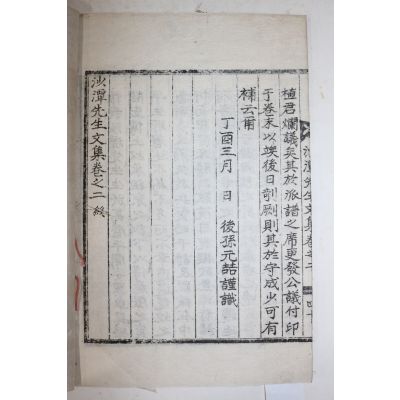 沙潭先生文集卷之二
植君爛議矣其於派譜之席更發公議付印
于卷末以竢後日剞劂則其於守成少可有
補云甫
丁酉三月 日 後孫元喆謹識
沙潭先生文集卷之二 終